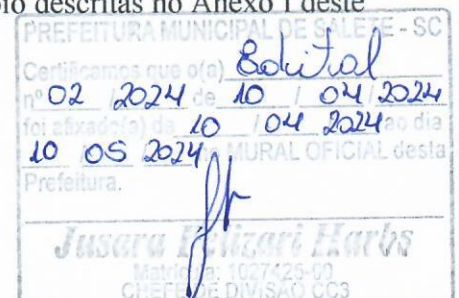 descritas no Anexo I deste
PREFEITURA MUNICIPAL DE SALETE - SC
Certificamos que o(a) Edital
nº 02 / 2024 de 10 / 04 / 2024
foi afixado(a) da 10 / 04 2024 ao dia
10 05 2024 no MURAL OFICIAL desta
Prefeitura.
Jusara Harbs
Matrícula: 1027425-00
CHEFE DE DIVISÃO CC3